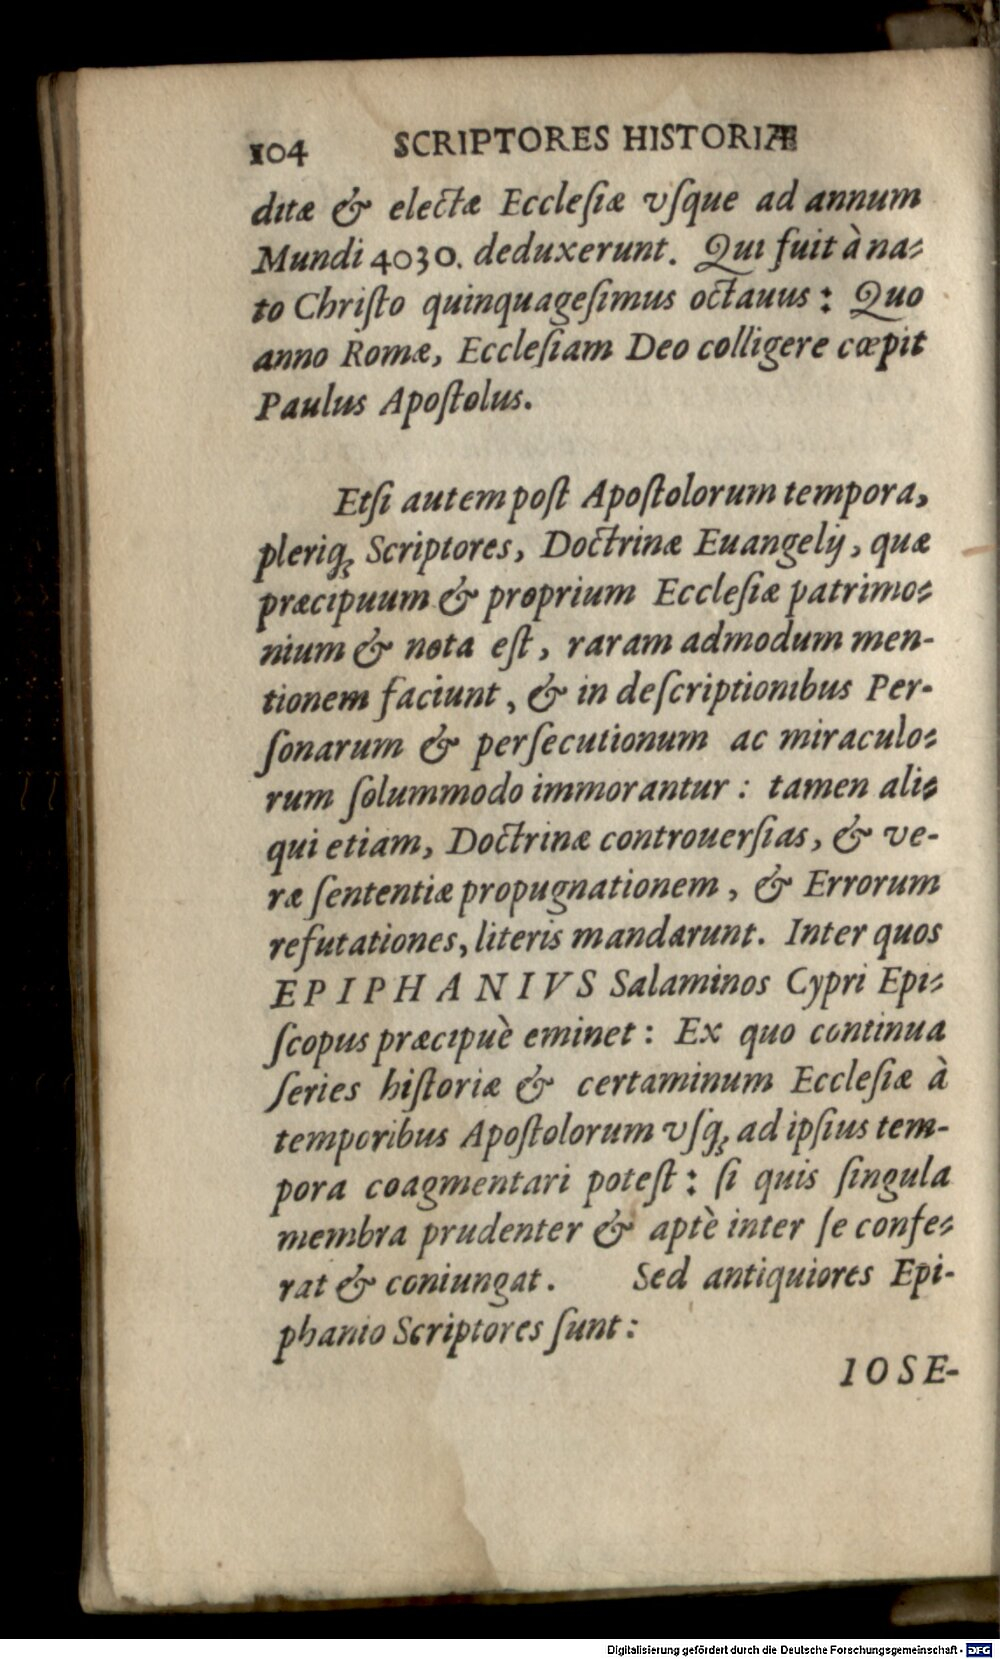 104 SCRIPTORES HISTORIÆ
ditæ & electæ Ecclesiæ vsque ad annum
Mundi 4030. deduxerunt. Qui fuit à na-
to Christo quinquagesimus octauus: Quo
anno Romæ, Ecclesiam Deo colligere cœpit
Paulus Apostolus.
Etsi autem post Apostolorum tempora,
pleriq; Scriptores, Doctrinæ Euangelij, quæ
præcipuum & proprium Ecclesiæ patrimo-
nium & nota est, raram admodum men-
tionem faciunt, & in descriptionibus Per-
sonarum & persecutionum ac miraculo-
rum solummodo immorantur: tamen ali-
qui etiam, Doctrinæ controuersias, & ve-
ræ sententiæ propugnationem, & Errorum
refutationes, literis mandarunt. Inter quos
EPIPHANIVS Salaminos Cypri Epi-
scopus præcipuè eminet: Ex quo continua
series historiæ & certaminum Ecclesiæ à
temporibus Apostolorum vsq; ad ipsius tem-
pora coagmentari potest: si quis singula
membra prudenter & aptè inter se confe-
rat & coniungat. Sed antiquiores Epi-
phanio Scriptores sunt:
IOSE-
Digitalisierung gefördert durch die Deutsche Forschungsgemeinschaft - DFG